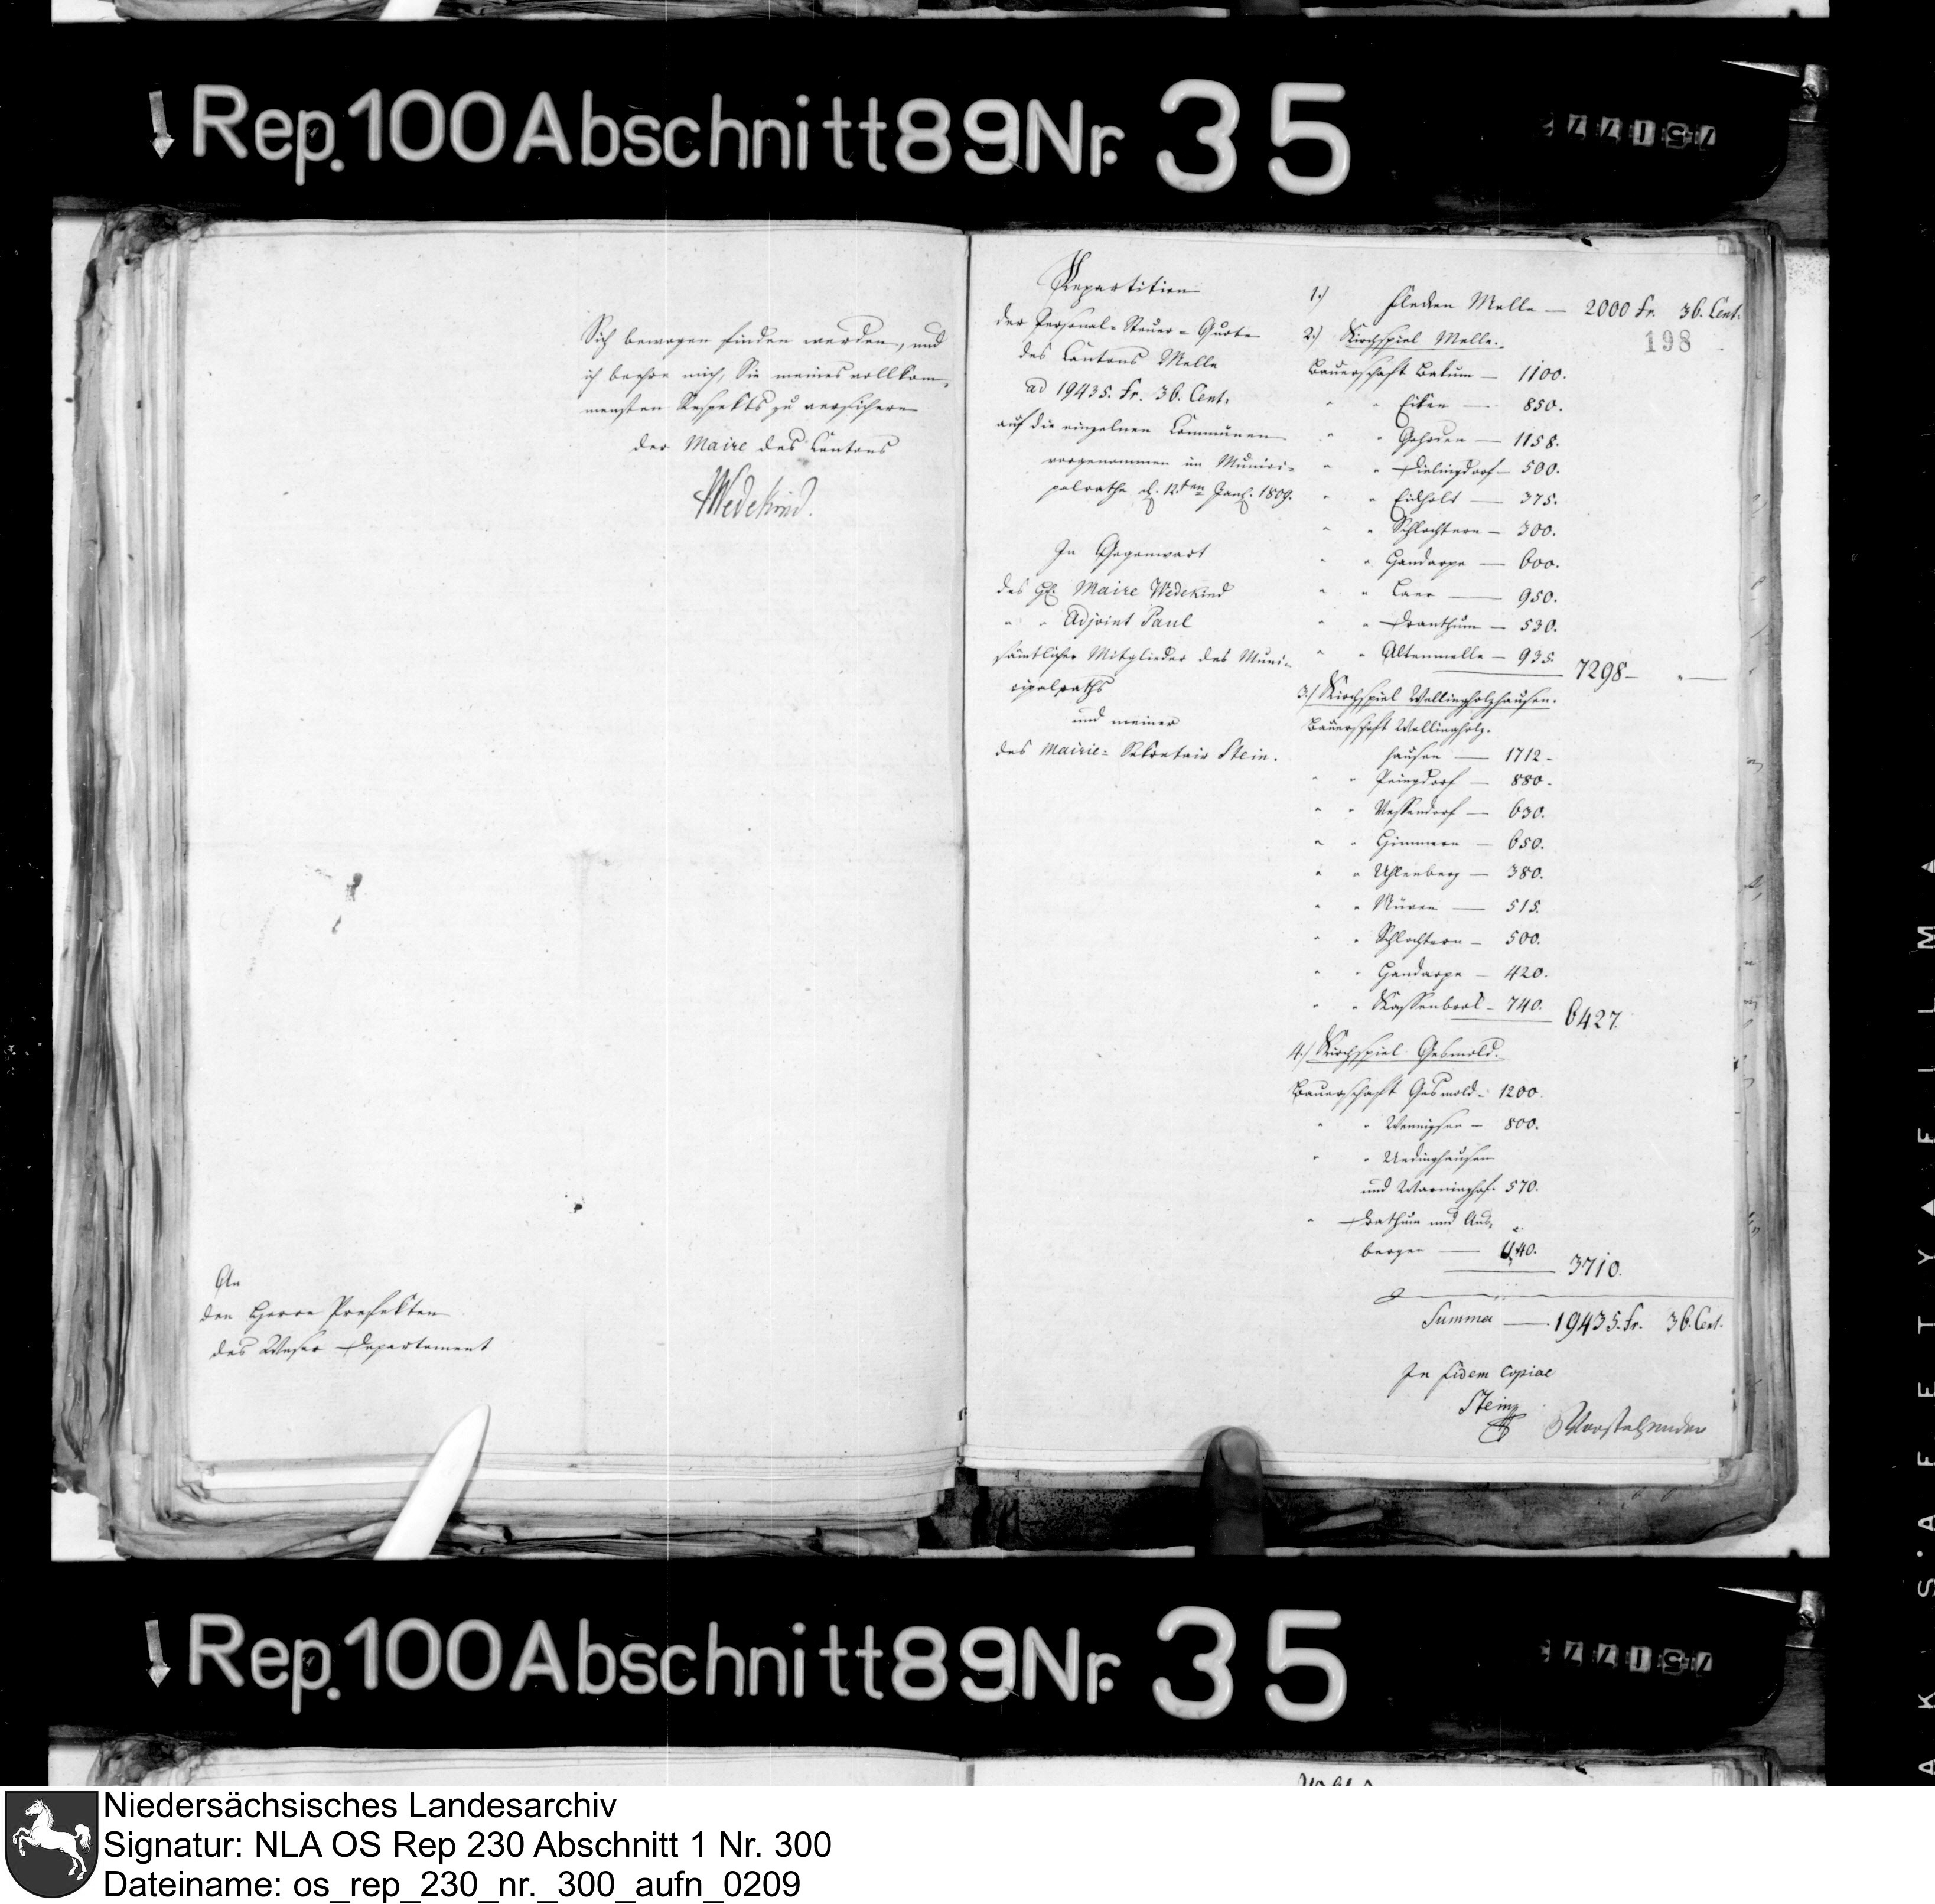 Rep.100Abschnitt89Nr. 35
Sich bewogen finden werden, und
ich beehre mich, Sie meines vollkom-
mensten Respekts zu versichern
der Maire des Cantons
Wedekind.
An
den Herrn Prefekten
des Weser Departement
Repartition
der Personal-Steuer-Quote
des Cantons Melle
ad 19435. Fr. 36. Cent.
auf die einzelnen Communen
vorgenommen im Munici-
palrathe d. 12ten Jan. 1809.
In Gegenwart
des H. Maire Wedekind
" " Adjoint Paul
sämtlicher Mitglieder des Muni-
cipalraths
und meiner
des Mairie-Sekretair Stein.
1.) Flecken Melle — 2000 Fr. 36. Cent.
198
2.) Kirchspiel Melle.
Bauerschaft Bakum — 1100.
" " Eiken — 850.
" " Gehrden — 1158.
" " Dielingdorf — 500.
" " Eickholt — 375.
" " Schlochtern — 300.
" " Handarpe — 600.
" " Laer — 950.
" " Dranthum — 530.
" " Altenmelle — 935. 7298 — " —
3.) Kirchspiel Wellingholzhausen.
Bauerschaft Wellingholz-
hausen — 1712 -
" " Peingdorf — 880 -
" " Vessendorf — 630.
" " Himmern — 650.
" " Uhlenberg — 380.
" " Nüven — 515.
" " Schlochtern — 500.
" " Handarpe — 420.
" " Kassenbrok — 740. 6427.
4.) Kirchspiel Gesmold.
Bauerschaft Gesmold - 1200.
" " Wennigsen — 800.
" " Uedinghausen
und Warringhof. 570.
" Drathum und Aus-
bergen — 1140. 3710.
Summa — 19435. Fr. 36. Cent.
In fidem copiae
Stein
Rep.100Abschnitt89Nr. 35
Niedersächsisches Landesarchiv
Signatur: NLA OS Rep 230 Abschnitt 1 Nr. 300
Dateiname: os_rep_230_nr._300_aufn_0209